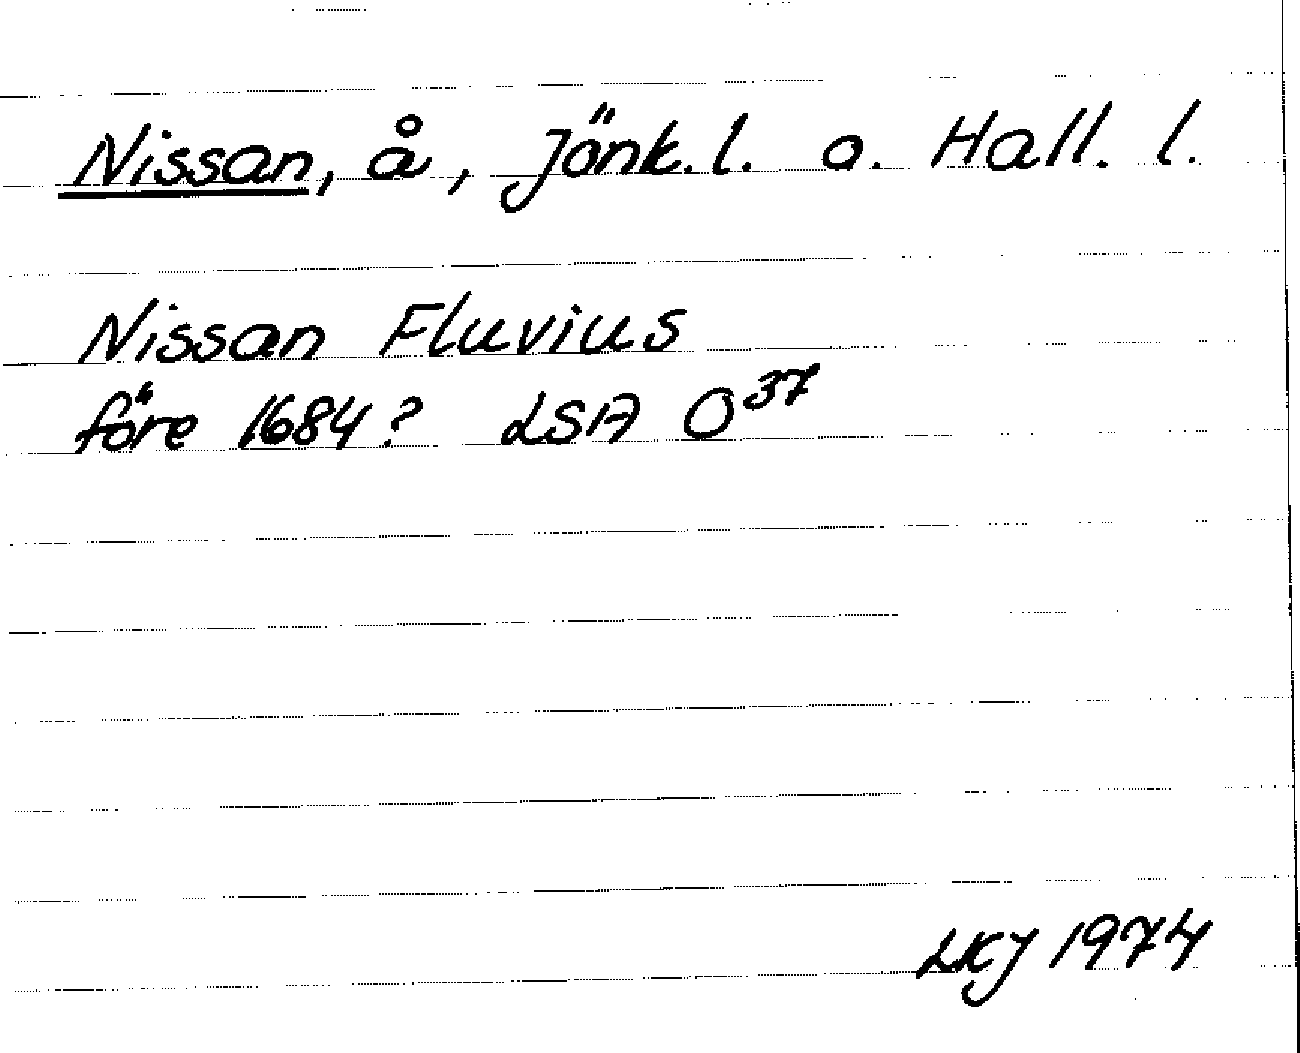 Nissan, å, Jönk. l. o. Hall. l.
Nissan Fluvius
före 1684? LSA O³⁷
LKJ 1974